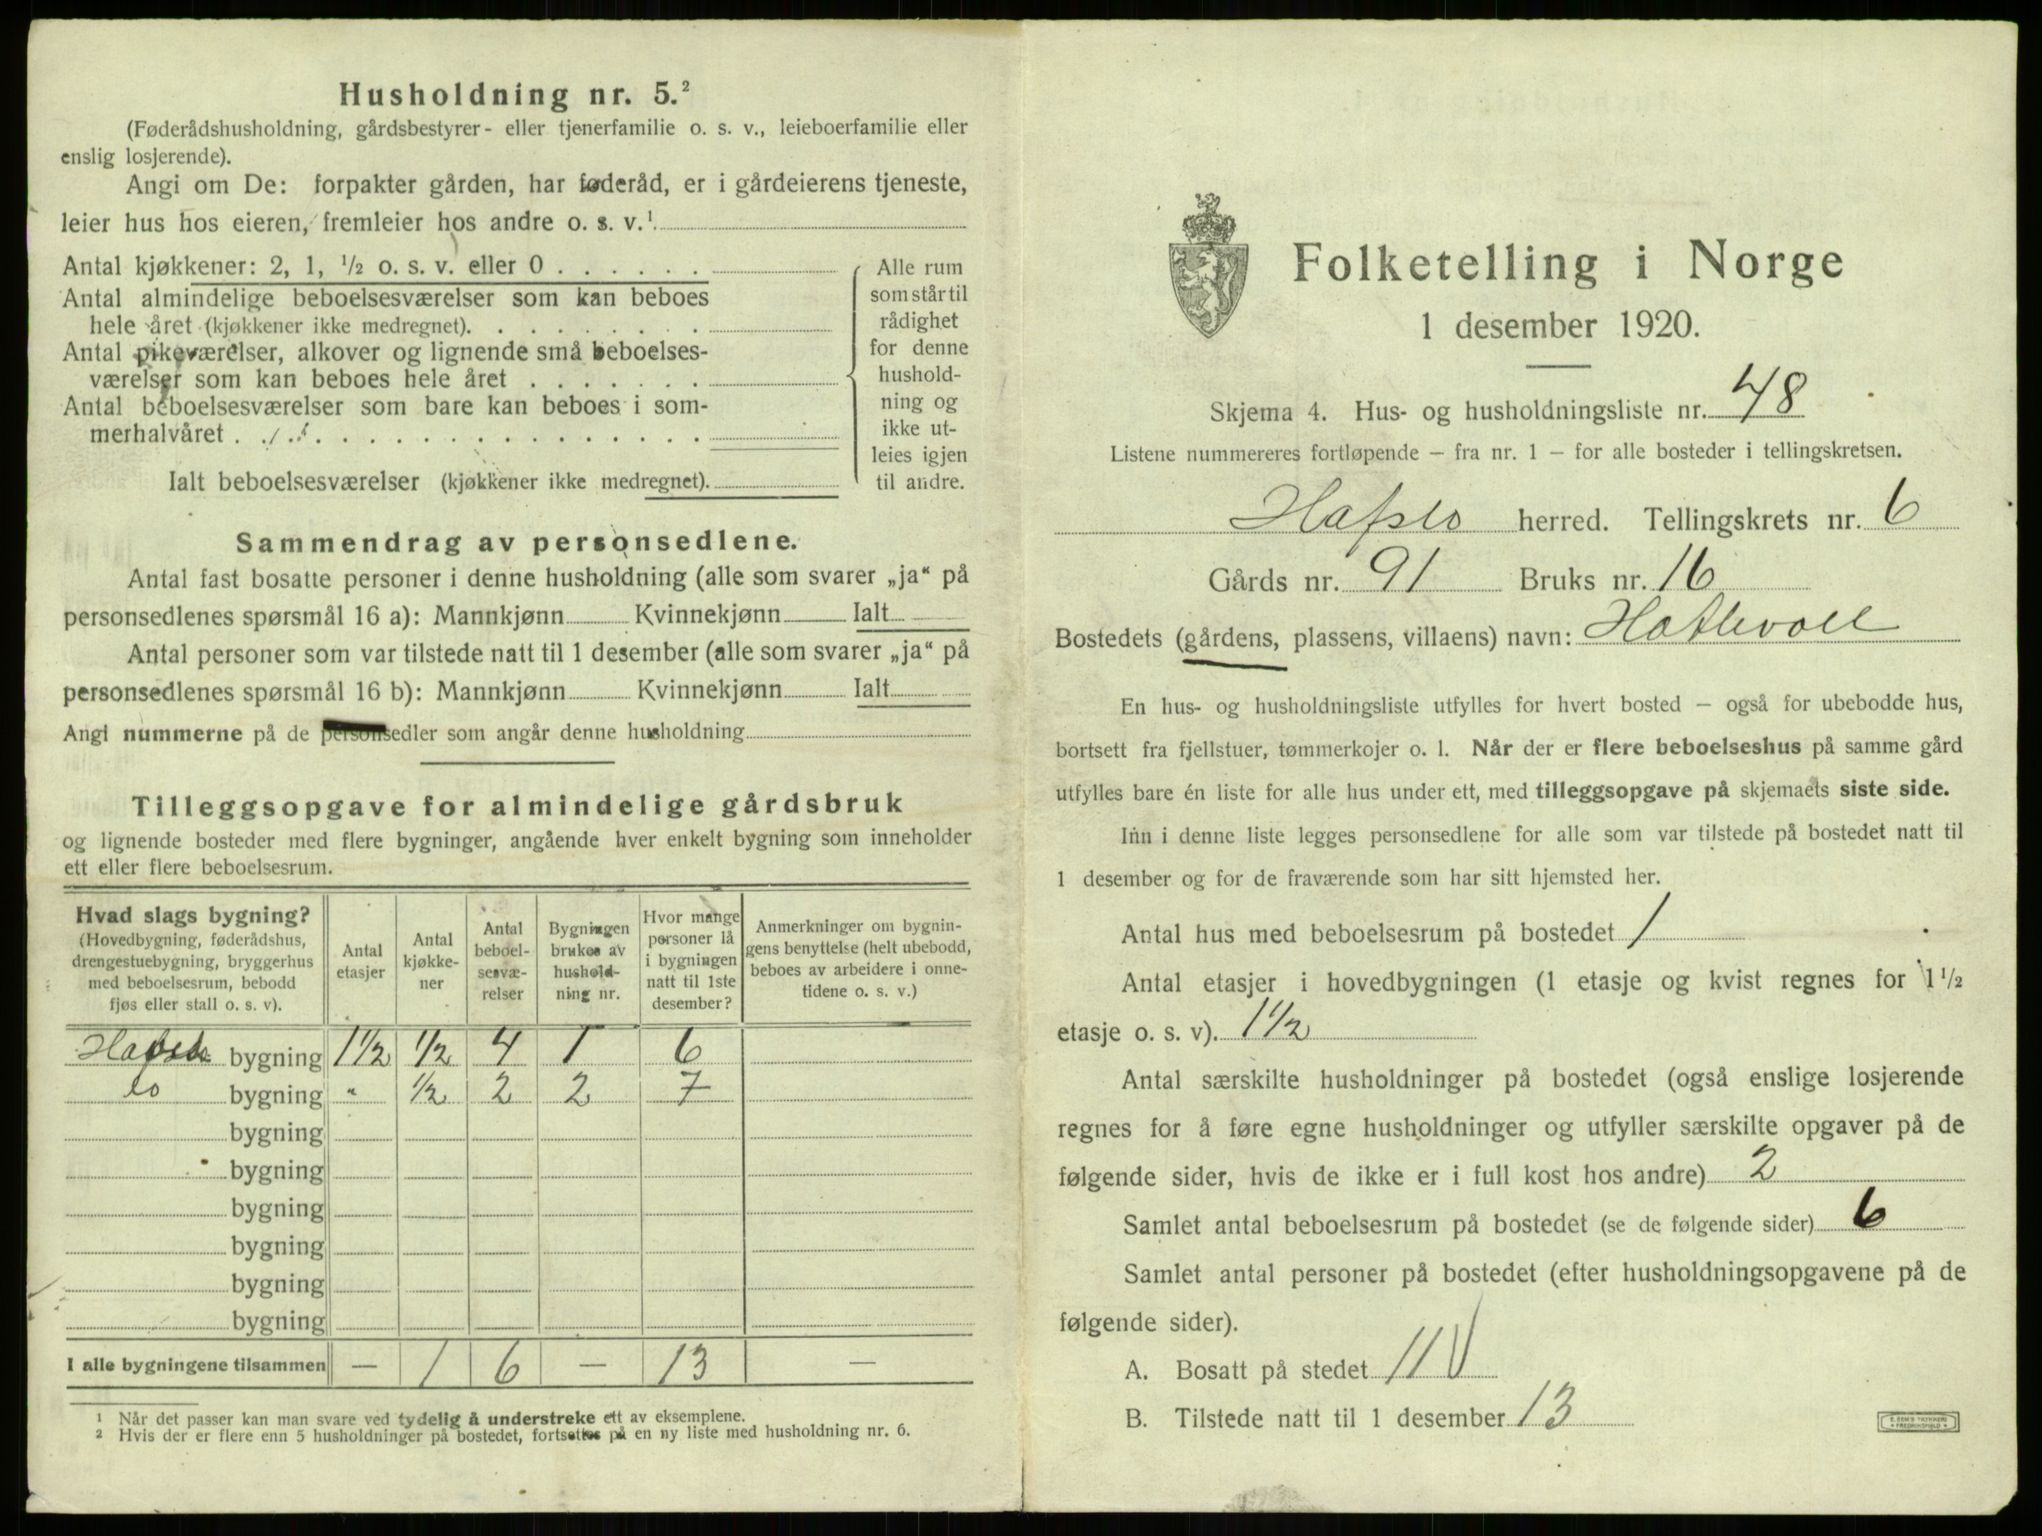 Husholdning nr. 5.²
(Føderådshusholdning, gårdsbestyrer- eller tjenerfamilie o. s. v., leieboerfamilie eller
enslig losjerende).
Angi om De: forpakter gården, har føderåd, er i gårdeierens tjeneste,
leier hus hos eieren, fremleier hos andre o. s. v.¹
Antal kjøkkener: 2, 1, ½ o. s. v. eller 0 . . . . . .
Antal almindelige beboelsesværelser som kan beboes
hele året (kjøkkener ikke medregnet). . . . . . . . .
Antal pikeværelser, alkover og lignende små beboelses-
værelser som kan beboes hele året . . . . . . .
Antal beboelsesværelser som bare kan beboes i som-
merhalvåret . . . . . . . . . . . . . . . . .
Ialt beboelsesværelser (kjøkkener ikke medregnet).
Alle rum
som står til
rådighet
for denne
hushold-
ning og
ikke ut-
leies igjen
til andre.
Sammendrag av personsedlene.
Antal fast bosatte personer i denne husholdning (alle som svarer „ja“ på
personsedlenes spørsmål 16 a): Mannkjønn Kvinnekjønn Ialt
Antal personer som var tilstede natt til 1 desember (alle som svarer „ja“ på
personsedlenes spørsmål 16 b): Mannkjønn Kvinnekjønn Ialt
Angi nummerne på de personsedler som angår denne husholdning
Tilleggsopgave for almindelige gårdsbruk
og lignende bosteder med flere bygninger, angående hver enkelt bygning som inneholder
ett eller flere beboelsesrum.
Hvad slags bygning?
(Hovedbygning, føderådshus,
drengestuebygning, bryggerhus
med beboelsesrum, bebodd
fjøs eller stall o. s. v).
Antal
etasjer
Antal
kjøkke-
ner
Antal
beboel-
sesvæ-
relser
Bygningen
brukes av
hushold-
ning nr.
Hvor mange
personer lå
i bygningen
natt til 1ste
desember?
Anmerkninger om bygnin-
gens benyttelse (helt ubebodd,
beboes av arbeidere i onne-
tidene o. s. v.)
bygning 1½ ½ 4 1 6
bygning " ½ 2 2 7
bygning
bygning
bygning
bygning
bygning
bygning
I alle bygningene tilsammen — 1 6 — 13 —
¹ Når det passer kan man svare ved tydelig å understreke ett av eksemplene.
² Hvis der er flere enn 5 husholdninger på bostedet, fortsettes på en ny liste med husholdning nr. 6.
Folketelling i Norge
1 desember 1920.
Skjema 4. Hus- og husholdningsliste nr. 48
Listene nummereres fortløpende – fra nr. 1 – for alle bosteder i tellingskretsen.
Hafslo herred. Tellingskrets nr. 6
Gårds nr. 91 Bruks nr. 16
Bostedets (gårdens, plassens, villaens) navn: Hatlevoll
En hus- og husholdningsliste utfylles for hvert bosted – også for ubebodde hus,
bortsett fra fjellstuer, tømmerkojer o. l. Når der er flere beboelseshus på samme gård
utfylles bare én liste for alle hus under ett, med tilleggsopgave på skjemaets siste side.
Inn i denne liste legges personsedlene for alle som var tilstede på bostedet natt til
1 desember og for de fraværende som har sitt hjemsted her.
Antal hus med beboelsesrum på bostedet 1
Antal etasjer i hovedbygningen (1 etasje og kvist regnes for 1½
etasje o. s. v). 1½
Antal særskilte husholdninger på bostedet (også enslige losjerende
regnes for å føre egne husholdninger og utfyller særskilte opgaver på de
følgende sider, hvis de ikke er i full kost hos andre) 2
Samlet antal beboelsesrum på bostedet (se de følgende sider) 6
Samlet antal personer på bostedet (efter husholdningsopgavene på de
følgende sider).
A. Bosatt på stedet 11
B. Tilstede natt til 1 desember 13